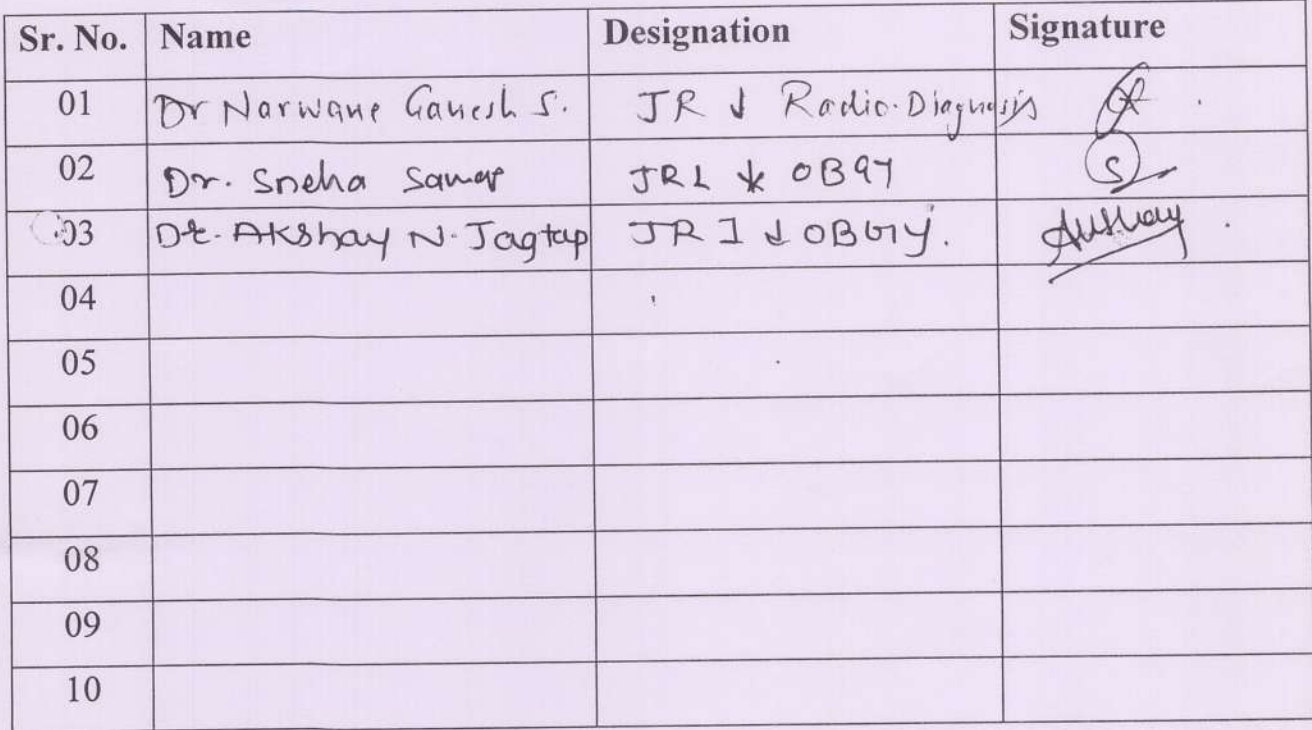 Sr. No. Name Designation Signature
01 Dr Narwane Ganesh S. JR ↓ Radio-Diagnosis
02 Dr. Sneha JR1 ↓ OBGY
03 Dr. Akshay N. Jagtap JR I ↓ OBGY. Akshay
04
05
06
07
08
09
10